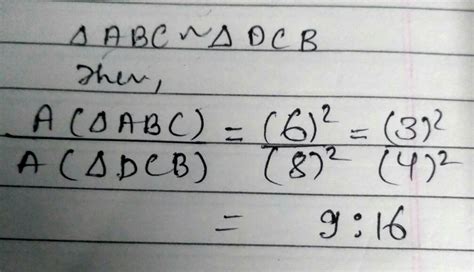 Δ ABC ~ Δ DCB
Then,
A(ΔABC) / A(ΔDCB) = (6)² / (8)² = (3)² / (4)²
= 9:16